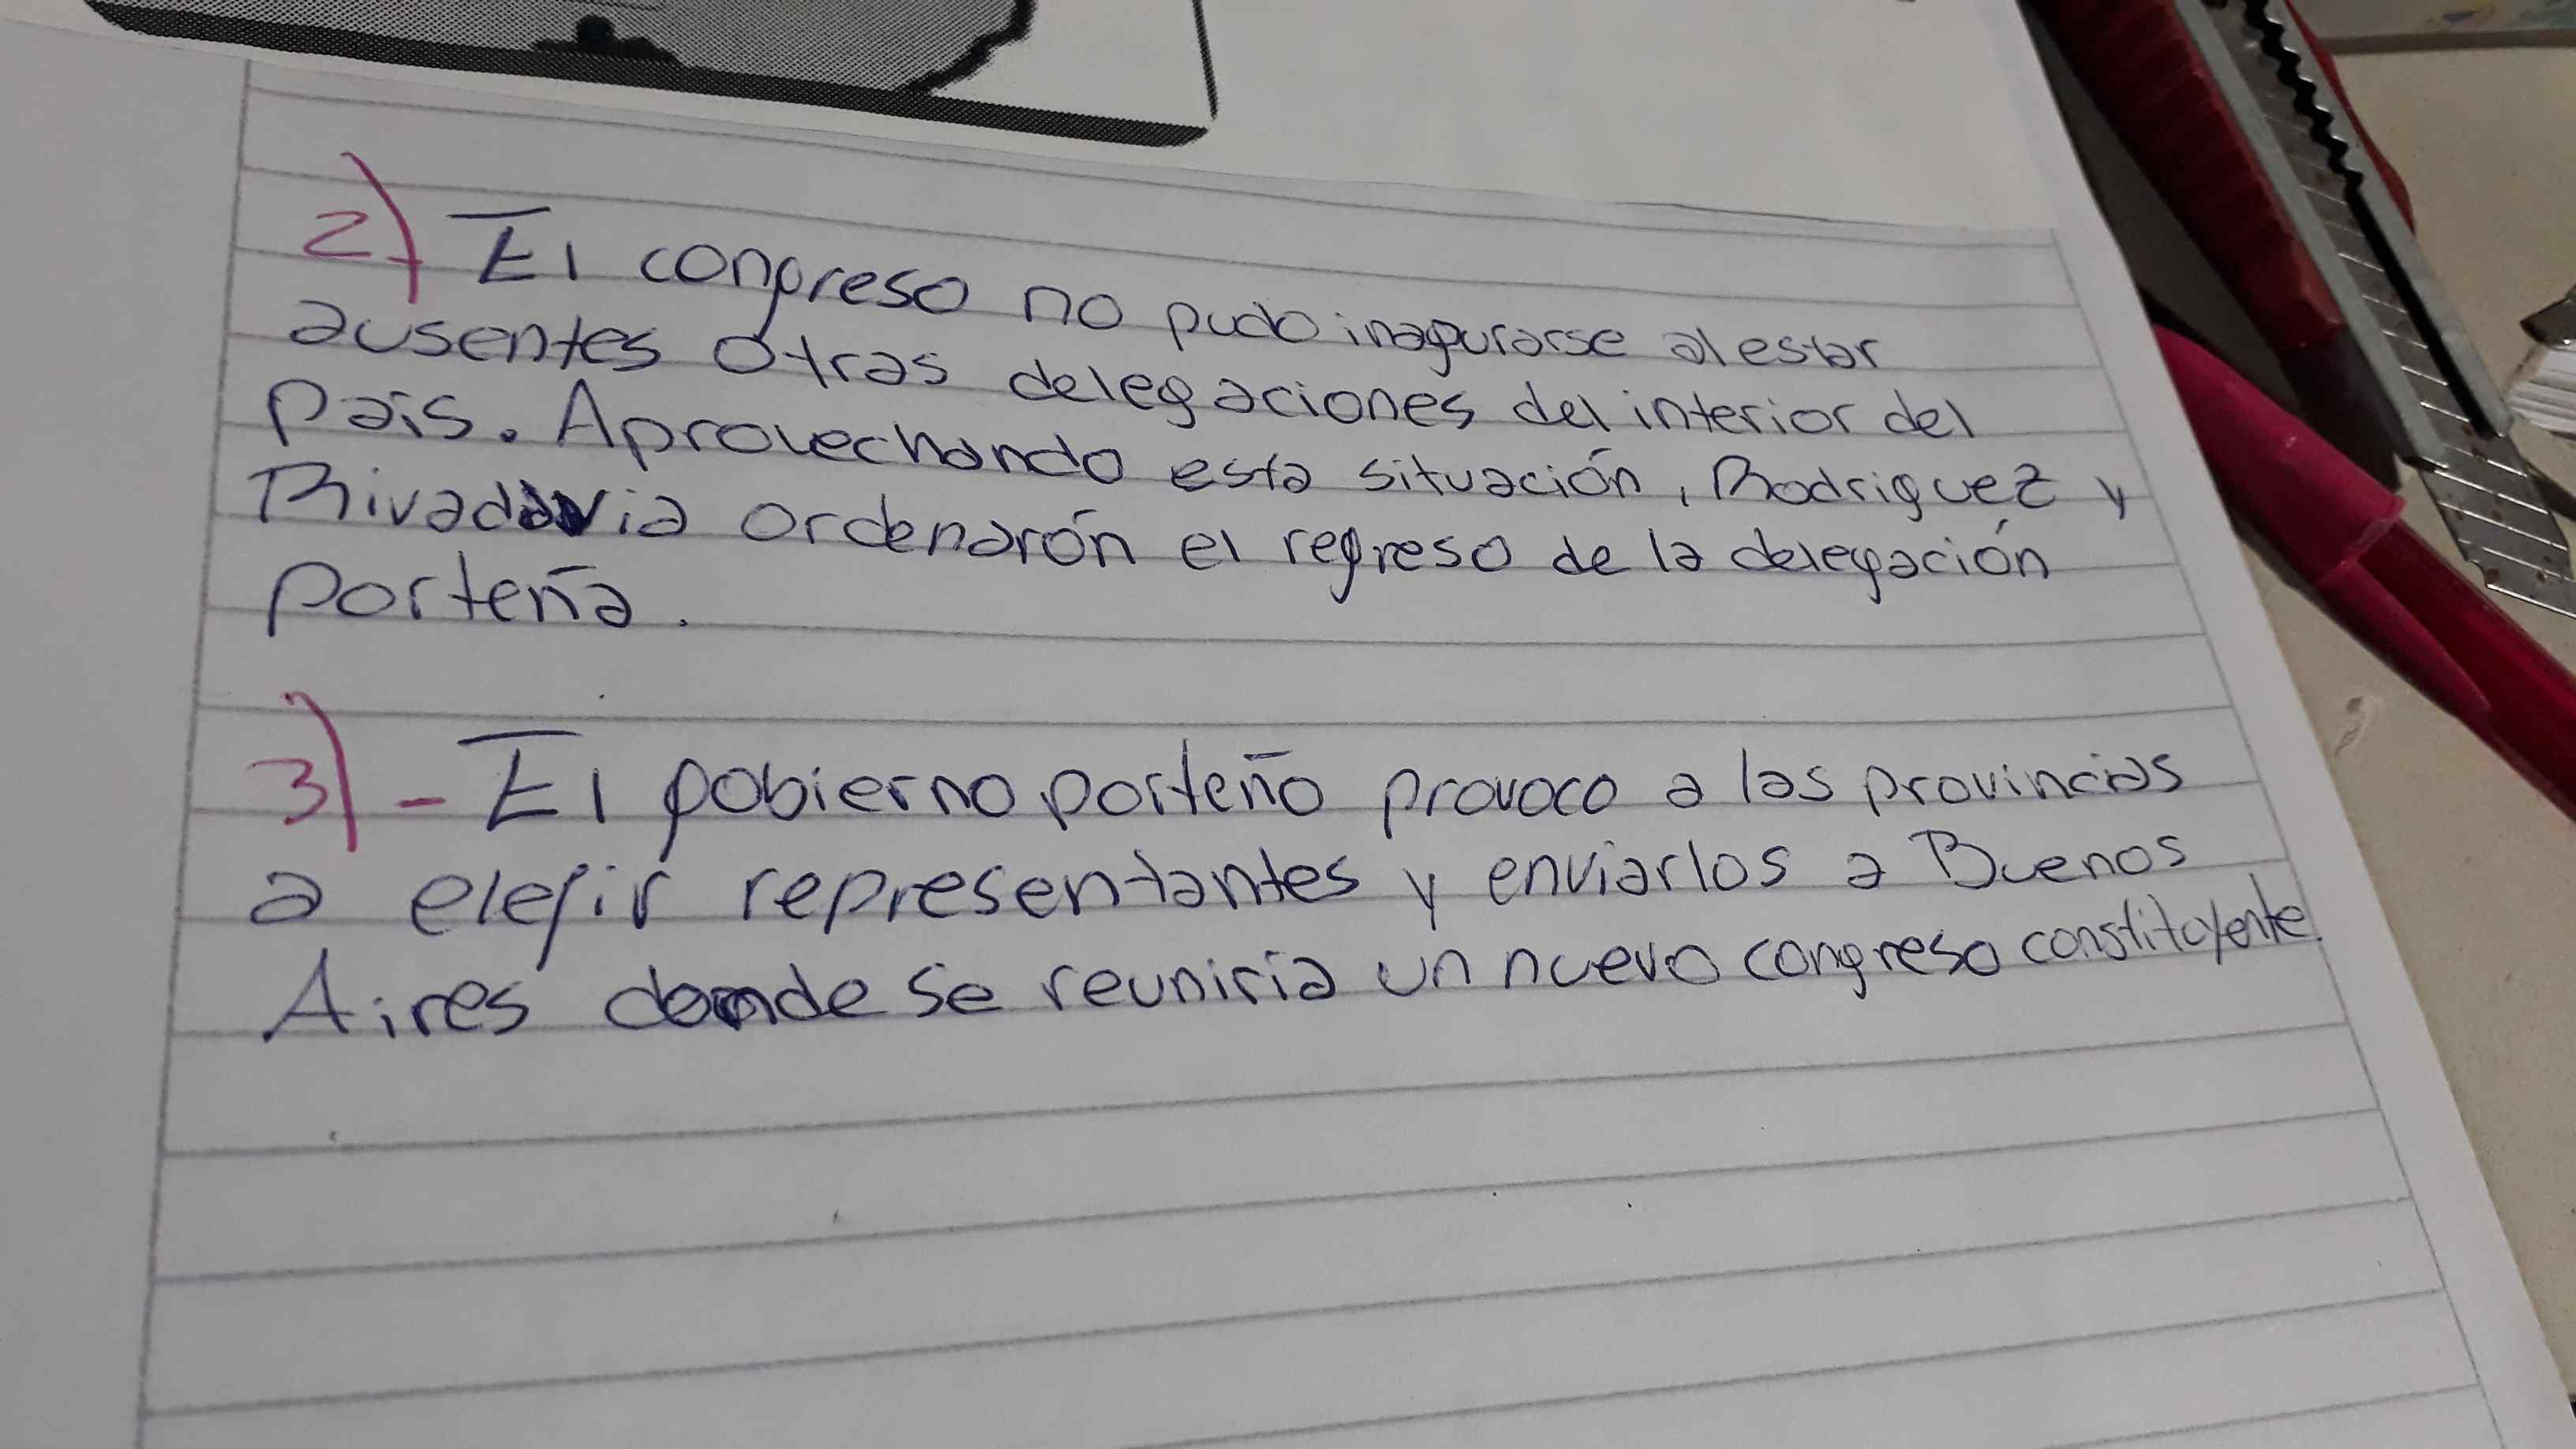 2) El congreso no pudo inagurarse al estar
ausentes otras delegaciones del interior del
pais. Aprovechando esta situación, Rodriguez y
Rivadavia ordenarón el regreso de la delegación
porteña.
3) - El gobierno porteño provoco a las provincias
a elegir representantes y enviarlos a Buenos
Aires donde se reuniria un nuevo congreso constituyente.